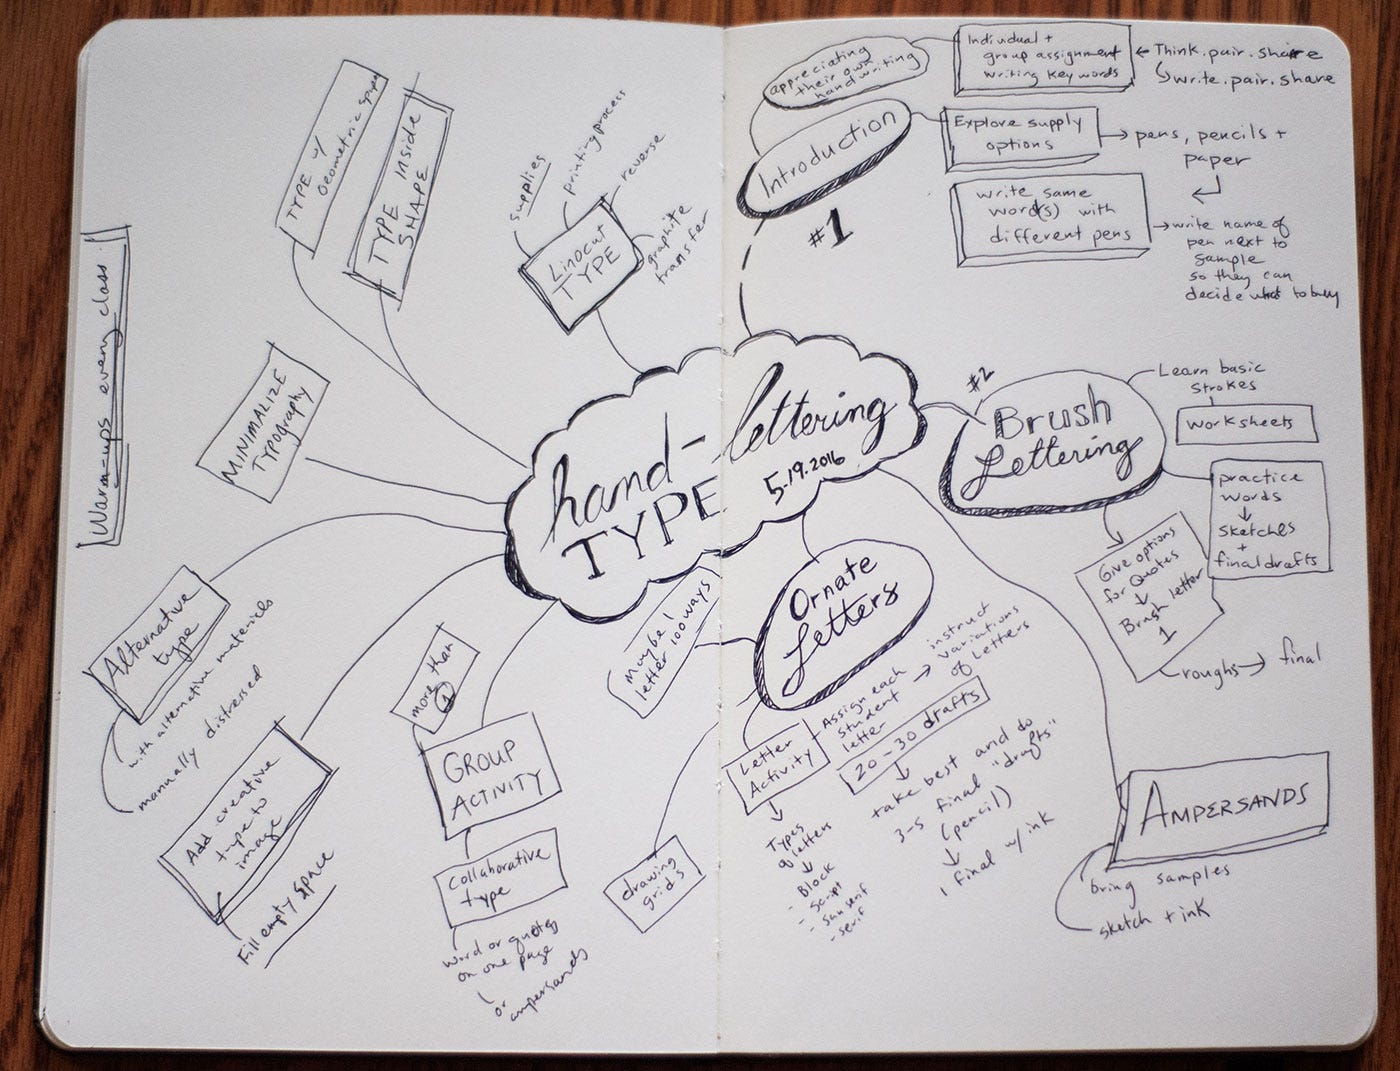 hand-lettering
TYPE
5.19.2016
#1
Introduction
appreciating
their own
handwriting
Individual +
group assignment
writing key words
Think.pair.share
write.pair.share
Explore supply
options
pens, pencils +
paper
write same
word(s) with
different pens
write name of
pen next to
sample
so they can
decide what to buy
#2
Brush
Lettering
Learn basic
strokes
worksheets
practice
words
sketches
+
final drafts
Give options
for Quotes
Brush letter
1
roughs → final
AMPERSANDS
bring samples
sketch + ink
Ornate
Letters
Maybe 1
letter 100 ways
Letter
Activity
Types
of letters
- Block
- Script
- San serif
- serif
Assign each
student
letter
instruct
variations
of letters
20-30 drafts
take best and do
3-5 final "drafts"
(pencil)
1 final w/ ink
drawing
grids
more than
1
GROUP
ACTIVITY
collaborative
type
word or quotes
on one page
or
ampersands
Add creative
type to
image
Fill empty space
Alternative
type
with alternative materials
manually distressed
MINIMALIZE
TYPOGRAPHY
TYPE w/
Geometric
TYPE INSIDE
SHAPE
LINOCUT
TYPE
supplies
printing process
reverse
graphite
transfer
Warm-ups every class